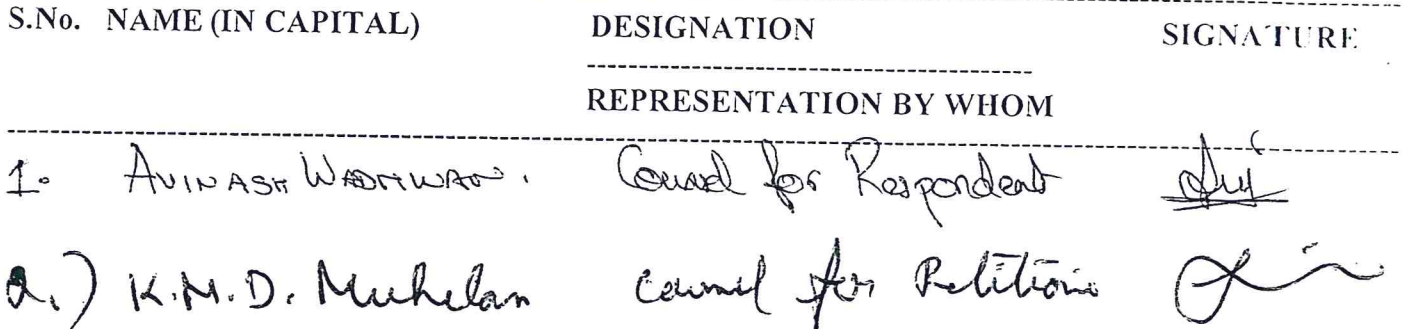 S.No. NAME (IN CAPITAL) DESIGNATION SIGNATURE
REPRESENTATION BY WHOM
1. AVINASH WADHWAN. Counsel for Respondent
2.) K.M.D. Muhilan Counsel for Petitione